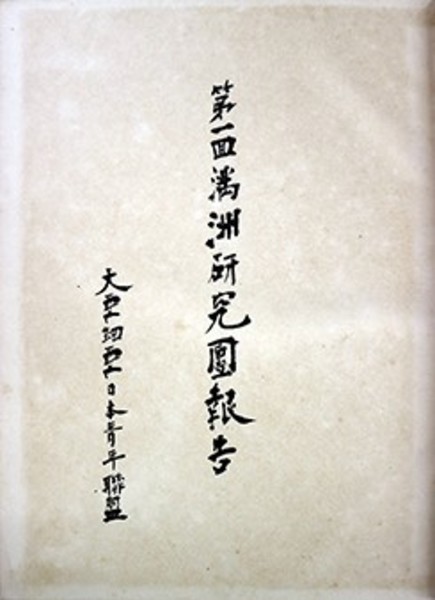 第一回滿洲研究團報告
大亜細亜日本青年聯盟